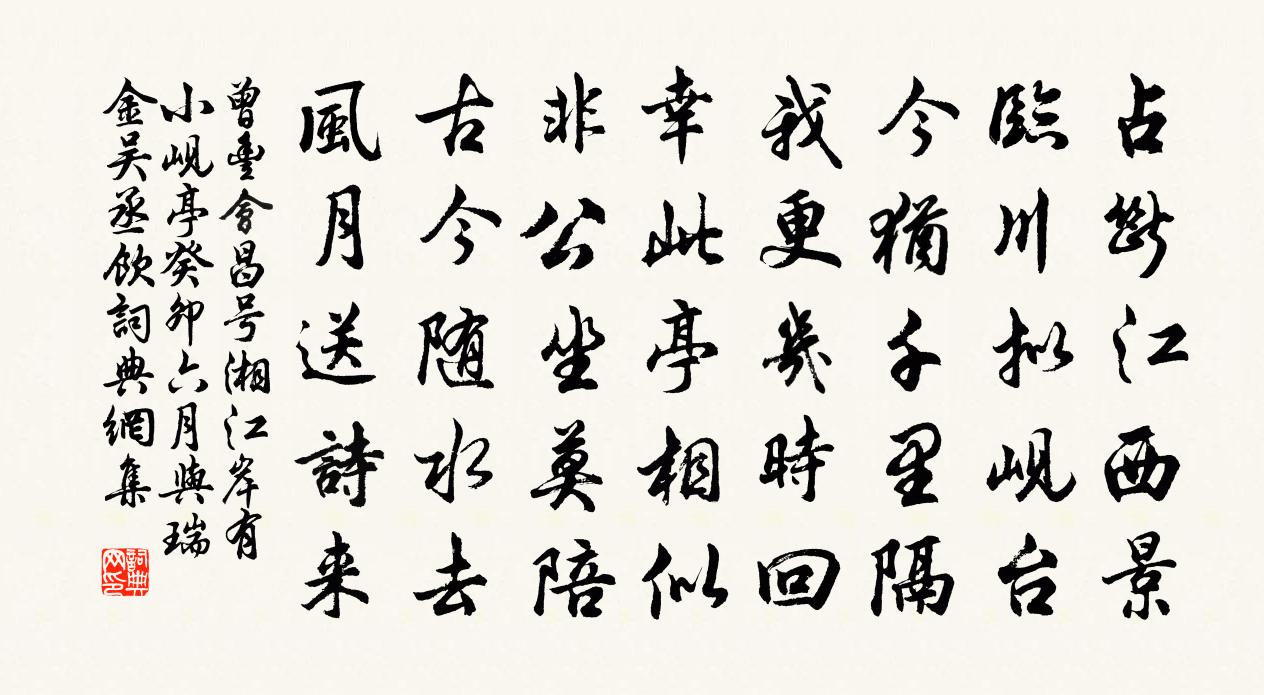 占断江西景
臨川拟峴台
今猶千里隔
我更幾時回
幸此亭相似
非公坐莫陪
古今随水去
風月送詩来
曾豊會昌号湘江岸有
小峴亭癸卯六月與瑞
金吴丞飲詞典網集
詞典网印